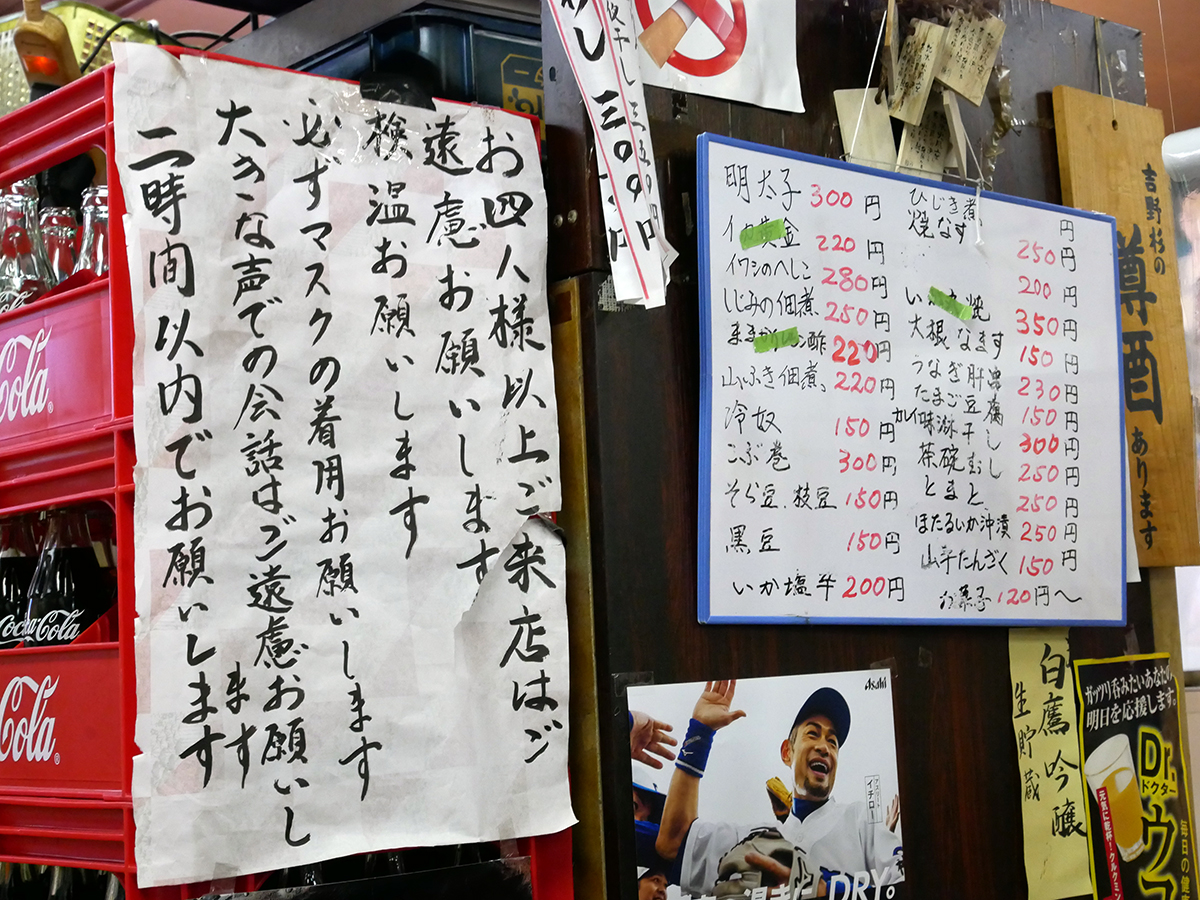 お四人様以上ご来店はご
遠慮お願いします
検温お願いします
必ずマスクの着用お願いします
大きな声での会話はご遠慮お願いし
ます
二時間以内でお願いします
明太子 300円
220円
イワシのへしこ 280円
しじみの佃煮 250円
酢 220円
山ぶき佃煮 220円
冷奴 150円
こぶ巻 300円
そら豆、枝豆 150円
黒豆 150円
いか塩辛 200円
ひじき煮 円
焼なす 250円
200円
焼 350円
大根なます 150円
うなぎ肝串 230円
たまご豆腐 150円
カレイ味淋干し 300円
茶碗むし 250円
とまと 250円
ほたるいか沖漬 250円
山芋たんざく 150円
お菓子 120円〜
吉野杉の
樽酒
あります
白鷹吟醸
生貯蔵
Asahi
イチロー
DRY。
ガッツリ呑みたいあなたの
明日を応援します。
Dr.
ドクター
ウコ
元気に乾杯！クルクミン
毎日の健
Cola
Cola
Coca-Cola